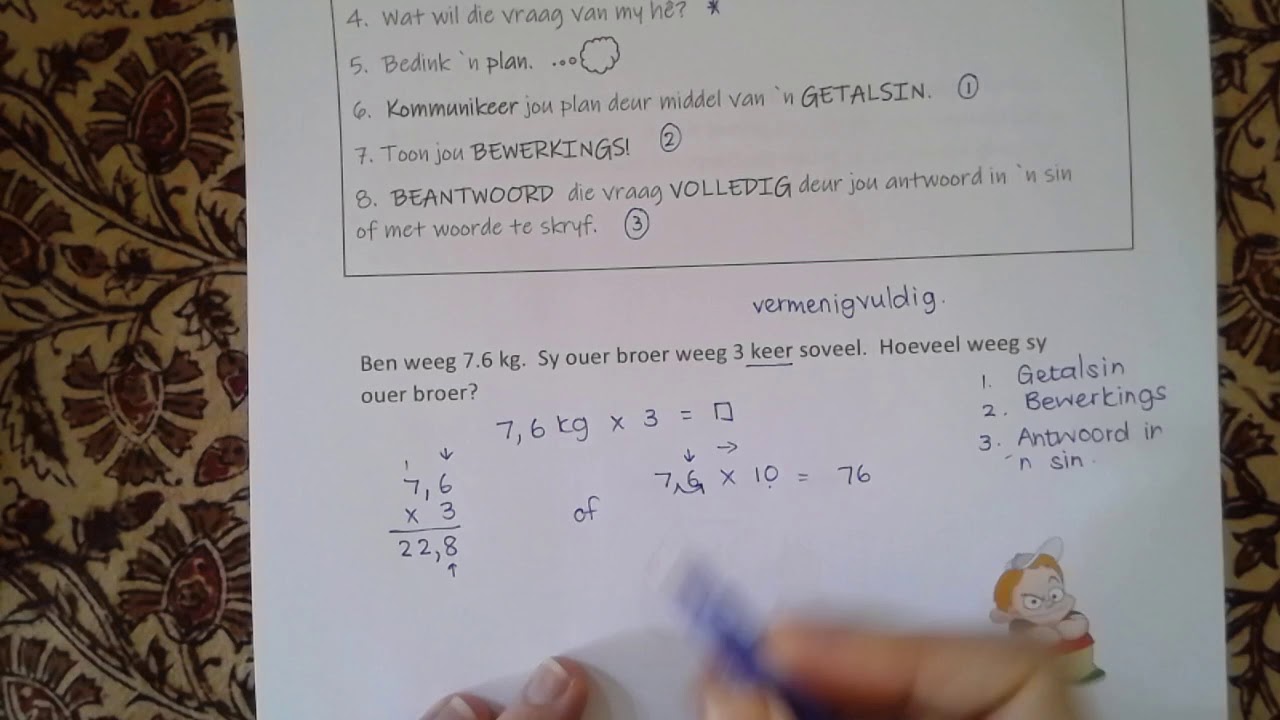 4. Wat wil die vraag van my hê? *
5. Bedink `n plan. ...
6. Kommunikeer jou plan deur middel van `n GETALSIN. ①
7. Toon jou BEWERKINGS! ②
8. BEANTWOORD die vraag VOLLEDIG deur jou antwoord in `n sin
of met woorde te skryf. ③
vermenigvuldig.
Ben weeg 7.6 kg. Sy ouer broer weeg 3 keer soveel. Hoeveel weeg sy
ouer broer?
1. Getalsin
2. Bewerkings
3. Antwoord in
'n sin.
7,6 kg x 3 = □
↓ →
7,6 x 10 = 76
1 ↓
7,6
x 3
22,8
↑
of